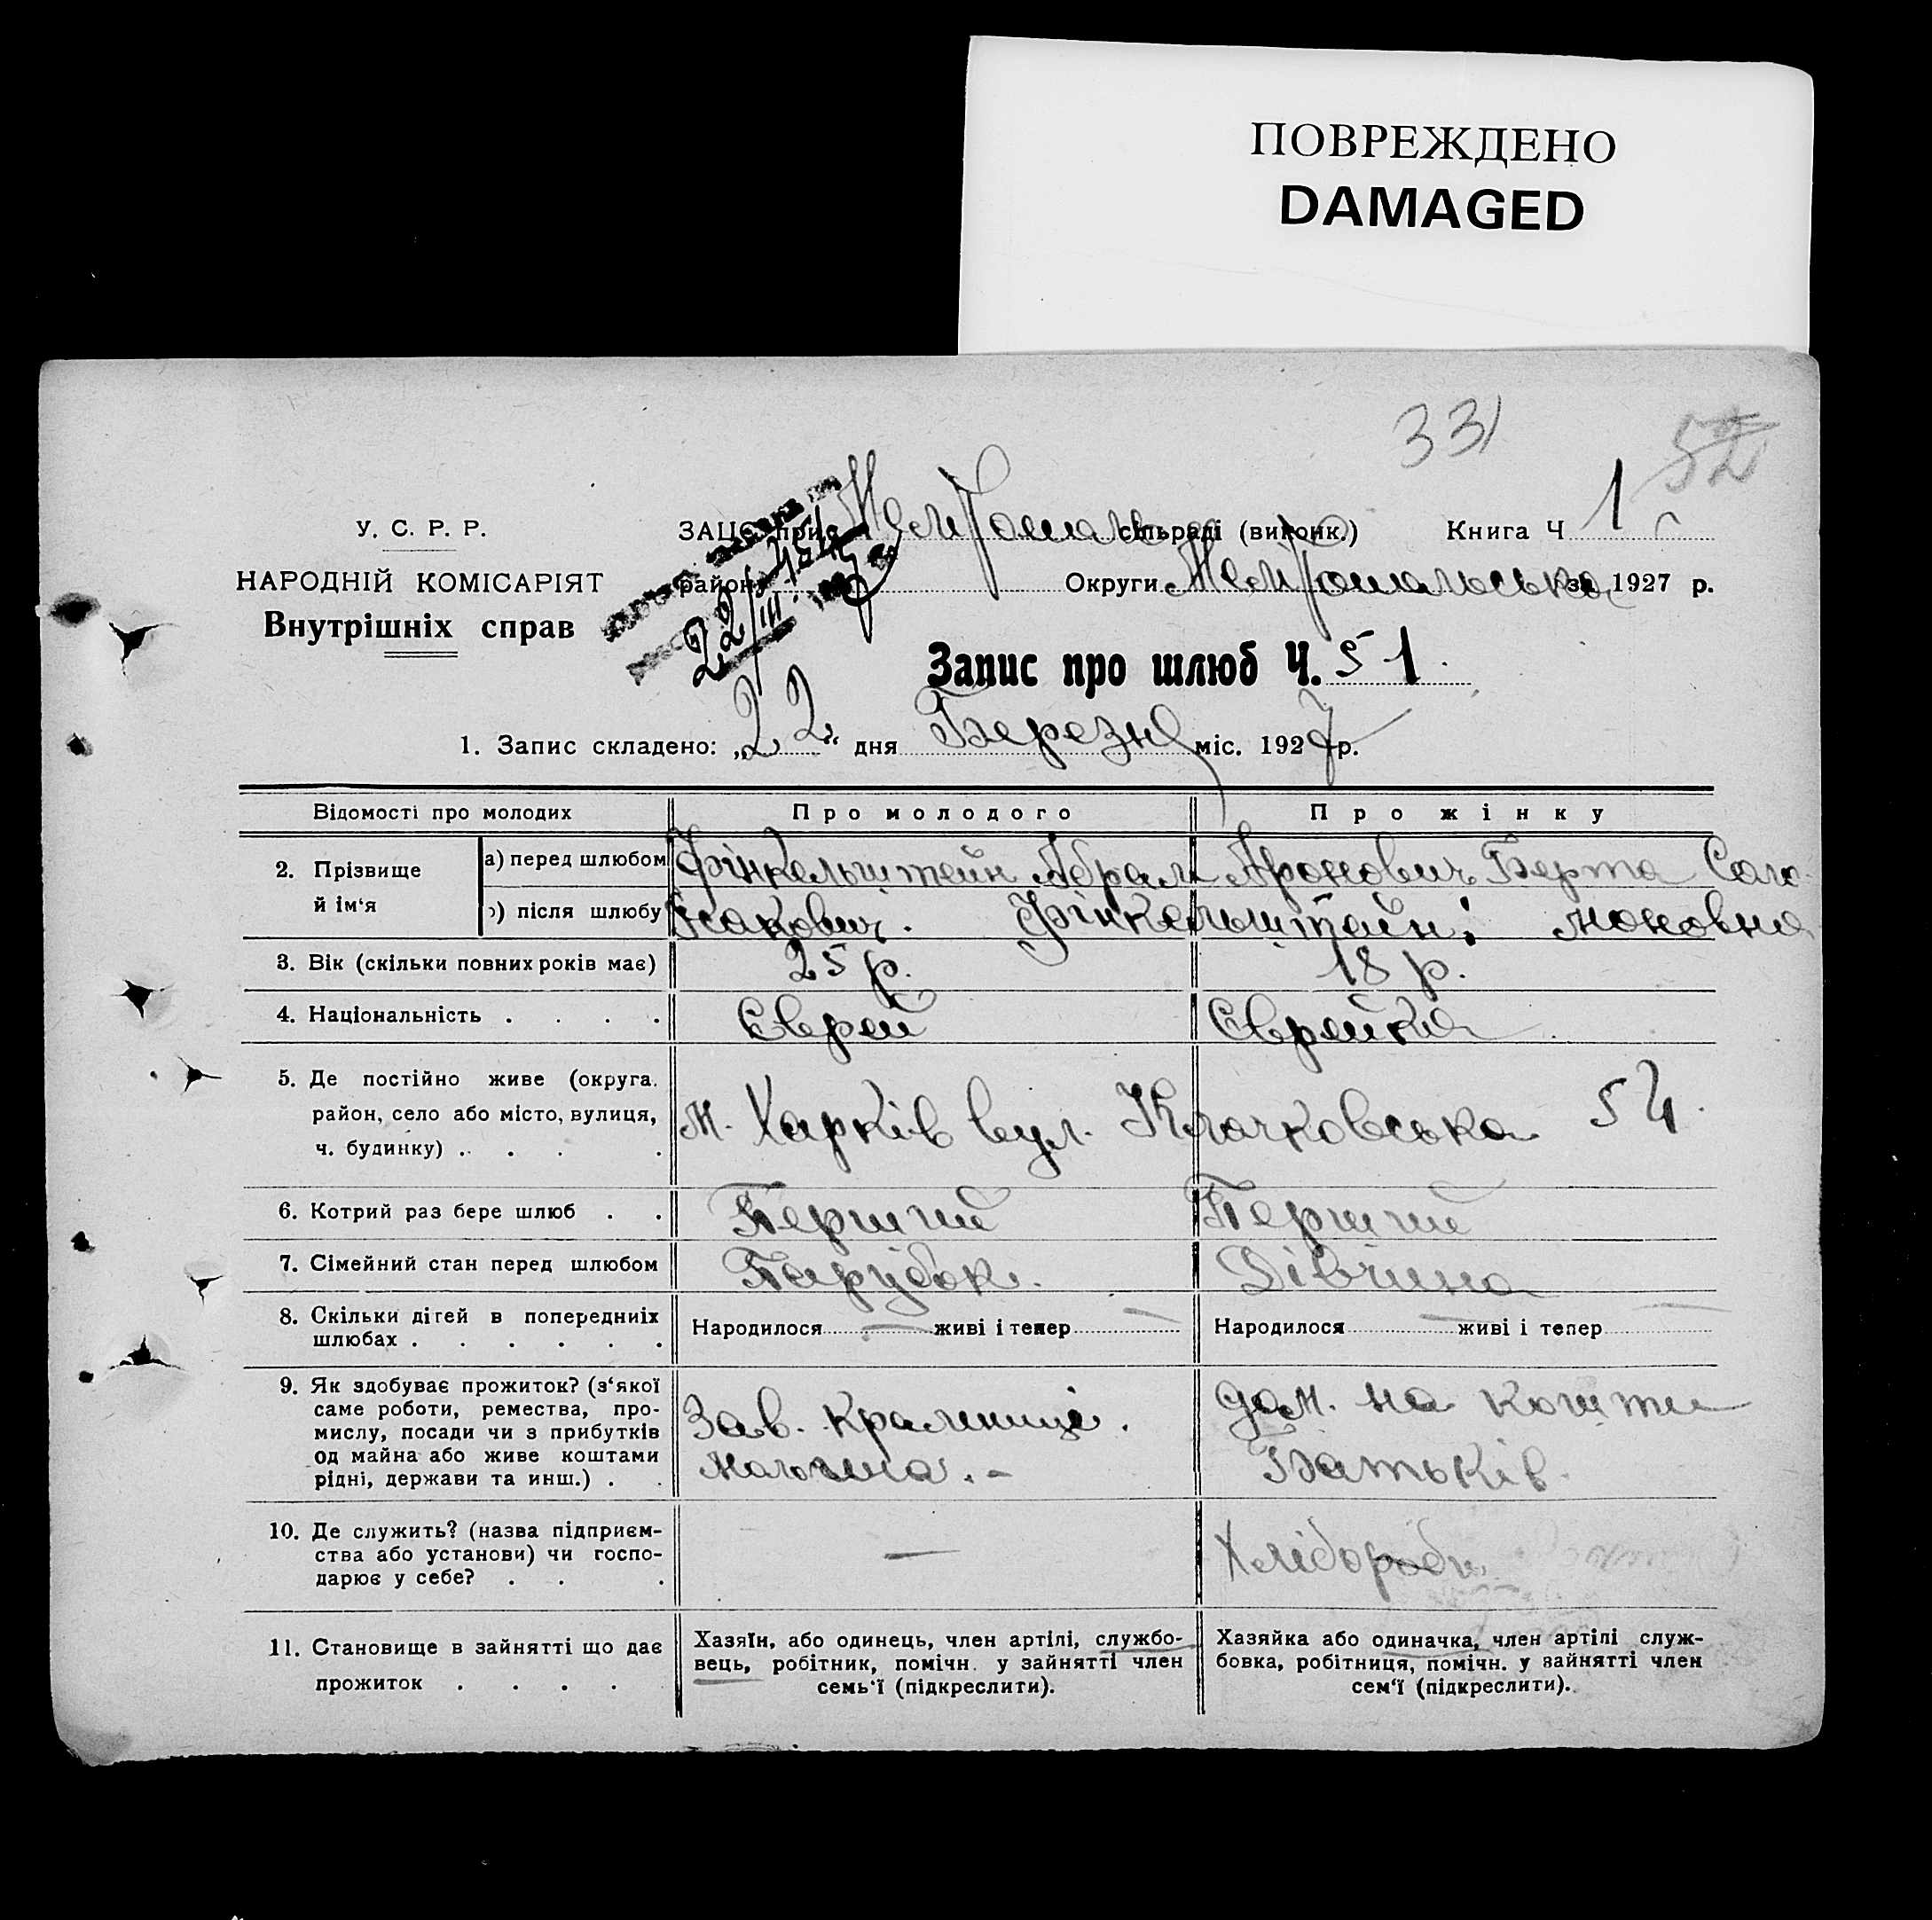 ПОВРЕЖДЕНО
DAMAGED
331
52
У. С. Р. Р.
НАРОДНІЙ КОМІСАРІЯТ
Внутрішніх справ
ЗАЦС при сільраді (виконк.) Книга Ч 1
район Округи за 1927 р.
22/III
Запис про шлюб Ч. 51
1. Запис складено: „22“ дня Березня міс. 1927 р.
Відомості про молодих Про молодого Про жінку
2. Прізвище й ім‘я
а) перед шлюбом Фінкельштейн Абрам Аронович Берта Соло-
б) після шлюбу Ісакович. Фінкельштейн: моновна
3. Вік (скільки повних років має) 25 р. 18 р.
4. Національність . . . . Єврей Єврейка
5. Де постійно живе (округа.
район, село або місто, вулиця,
ч. будинку) . . . .
м. Харків вул. Клочковська 54
6. Котрий раз бере шлюб . . Перший Перший
7. Сімейний стан перед шлюбом Парубок. Дівчина
8. Скільки дітей в попередниіх
шлюбах . . . . . .
Народилося — живі і тепер — Народилося — живі і тепер —
9. Як здобуває прожиток? (з‘якої
саме роботи, ремества, про-
мислу, посади чи з прибутків
од майна або живе коштами
рідні, держави та инш.) . .
Зав. крамниці.
дом. на кошти
Батьків.
10. Де служить? (назва підприєм-
ства або установи) чи госпо-
дарює у себе? . . .
—
Хлібороби
11. Становище в зайнятті що дає
прожиток . . . .
Хазяїн, або одинець, член артілі, службо-
вець, робітник, помічн. у зайнятті член
семь‘ї (підкреслити).
Хазяйка або одиначка, член артілі служ-
бовка, робітниця, помічн. у зайнятті член
сем‘ї (підкреслити).